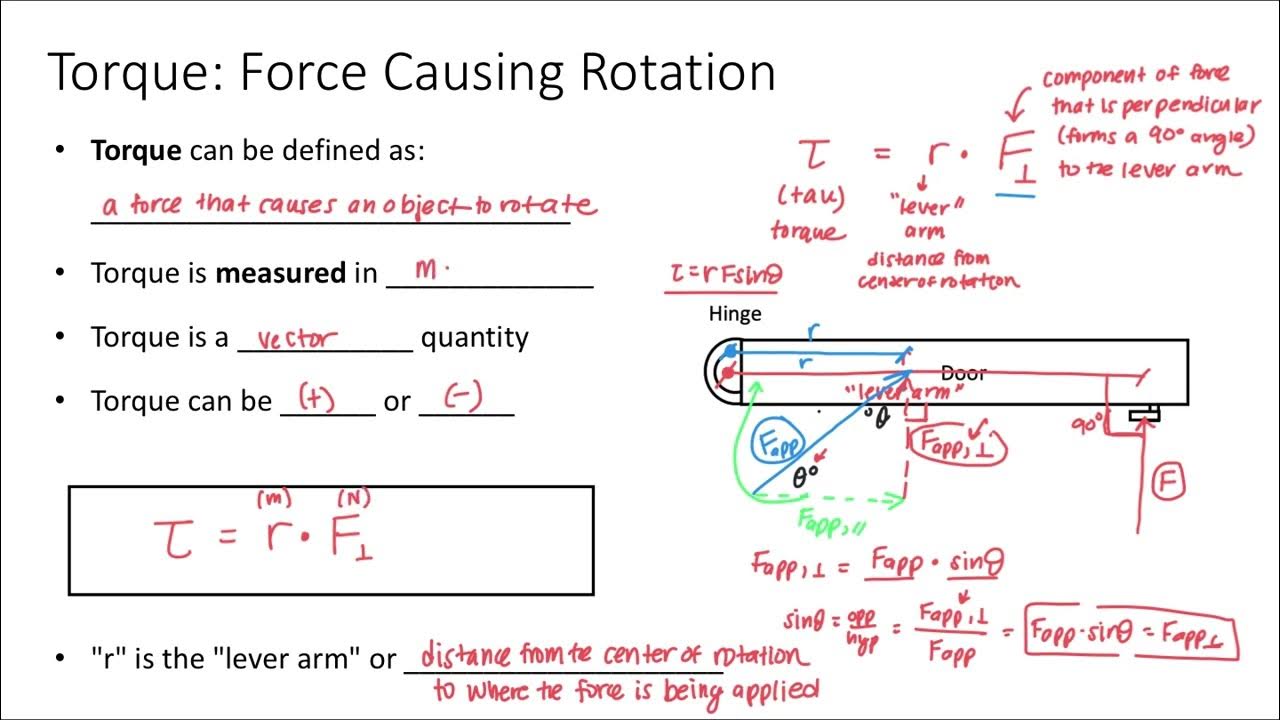 Torque: Force Causing Rotation
• Torque can be defined as:
a force that causes an object to rotate
• Torque is measured in m·
• Torque is a vector quantity
• Torque can be (+) or (-)
(m) (N)
τ = r · F⊥
• "r" is the "lever arm" or distance from the center of rotation
to where the force is being applied
component of force
that is perpendicular
(forms a 90° angle)
to the lever arm
τ = r · F⊥
(tau)
torque
"lever"
arm
distance from
center of rotation
τ = r F sinθ
Hinge
r
r
Door
"lever arm"
θ
Fapp
θ°
Fapp,⊥
90°
F
Fapp,//
Fapp,⊥ = Fapp · sinθ
sinθ = opp/hyp = Fapp,⊥/Fapp = Fapp · sinθ = Fapp⊥